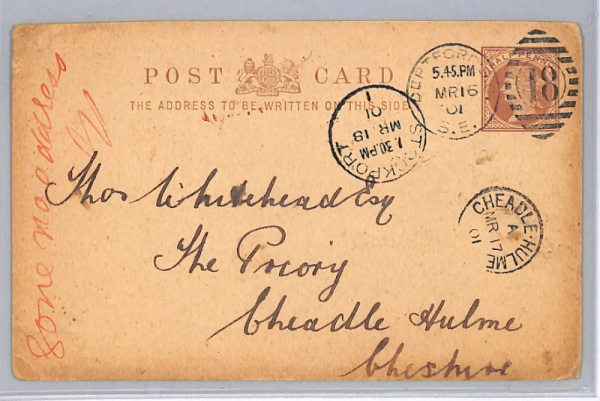 POST CARD
THE ADDRESS TO BE WRITTEN ON THIS SIDE
HALFPENNY
DEPTFORD
5.45.PM
MR 16
01
S.E.
48
STOCKPORT
1.30.PM
MR 18
01
1
CHEADLE-HULME
A
MR 17
01
Thos Whitehead Esq
The Priory
Cheadle Hulme
Cheshire
Gone no address